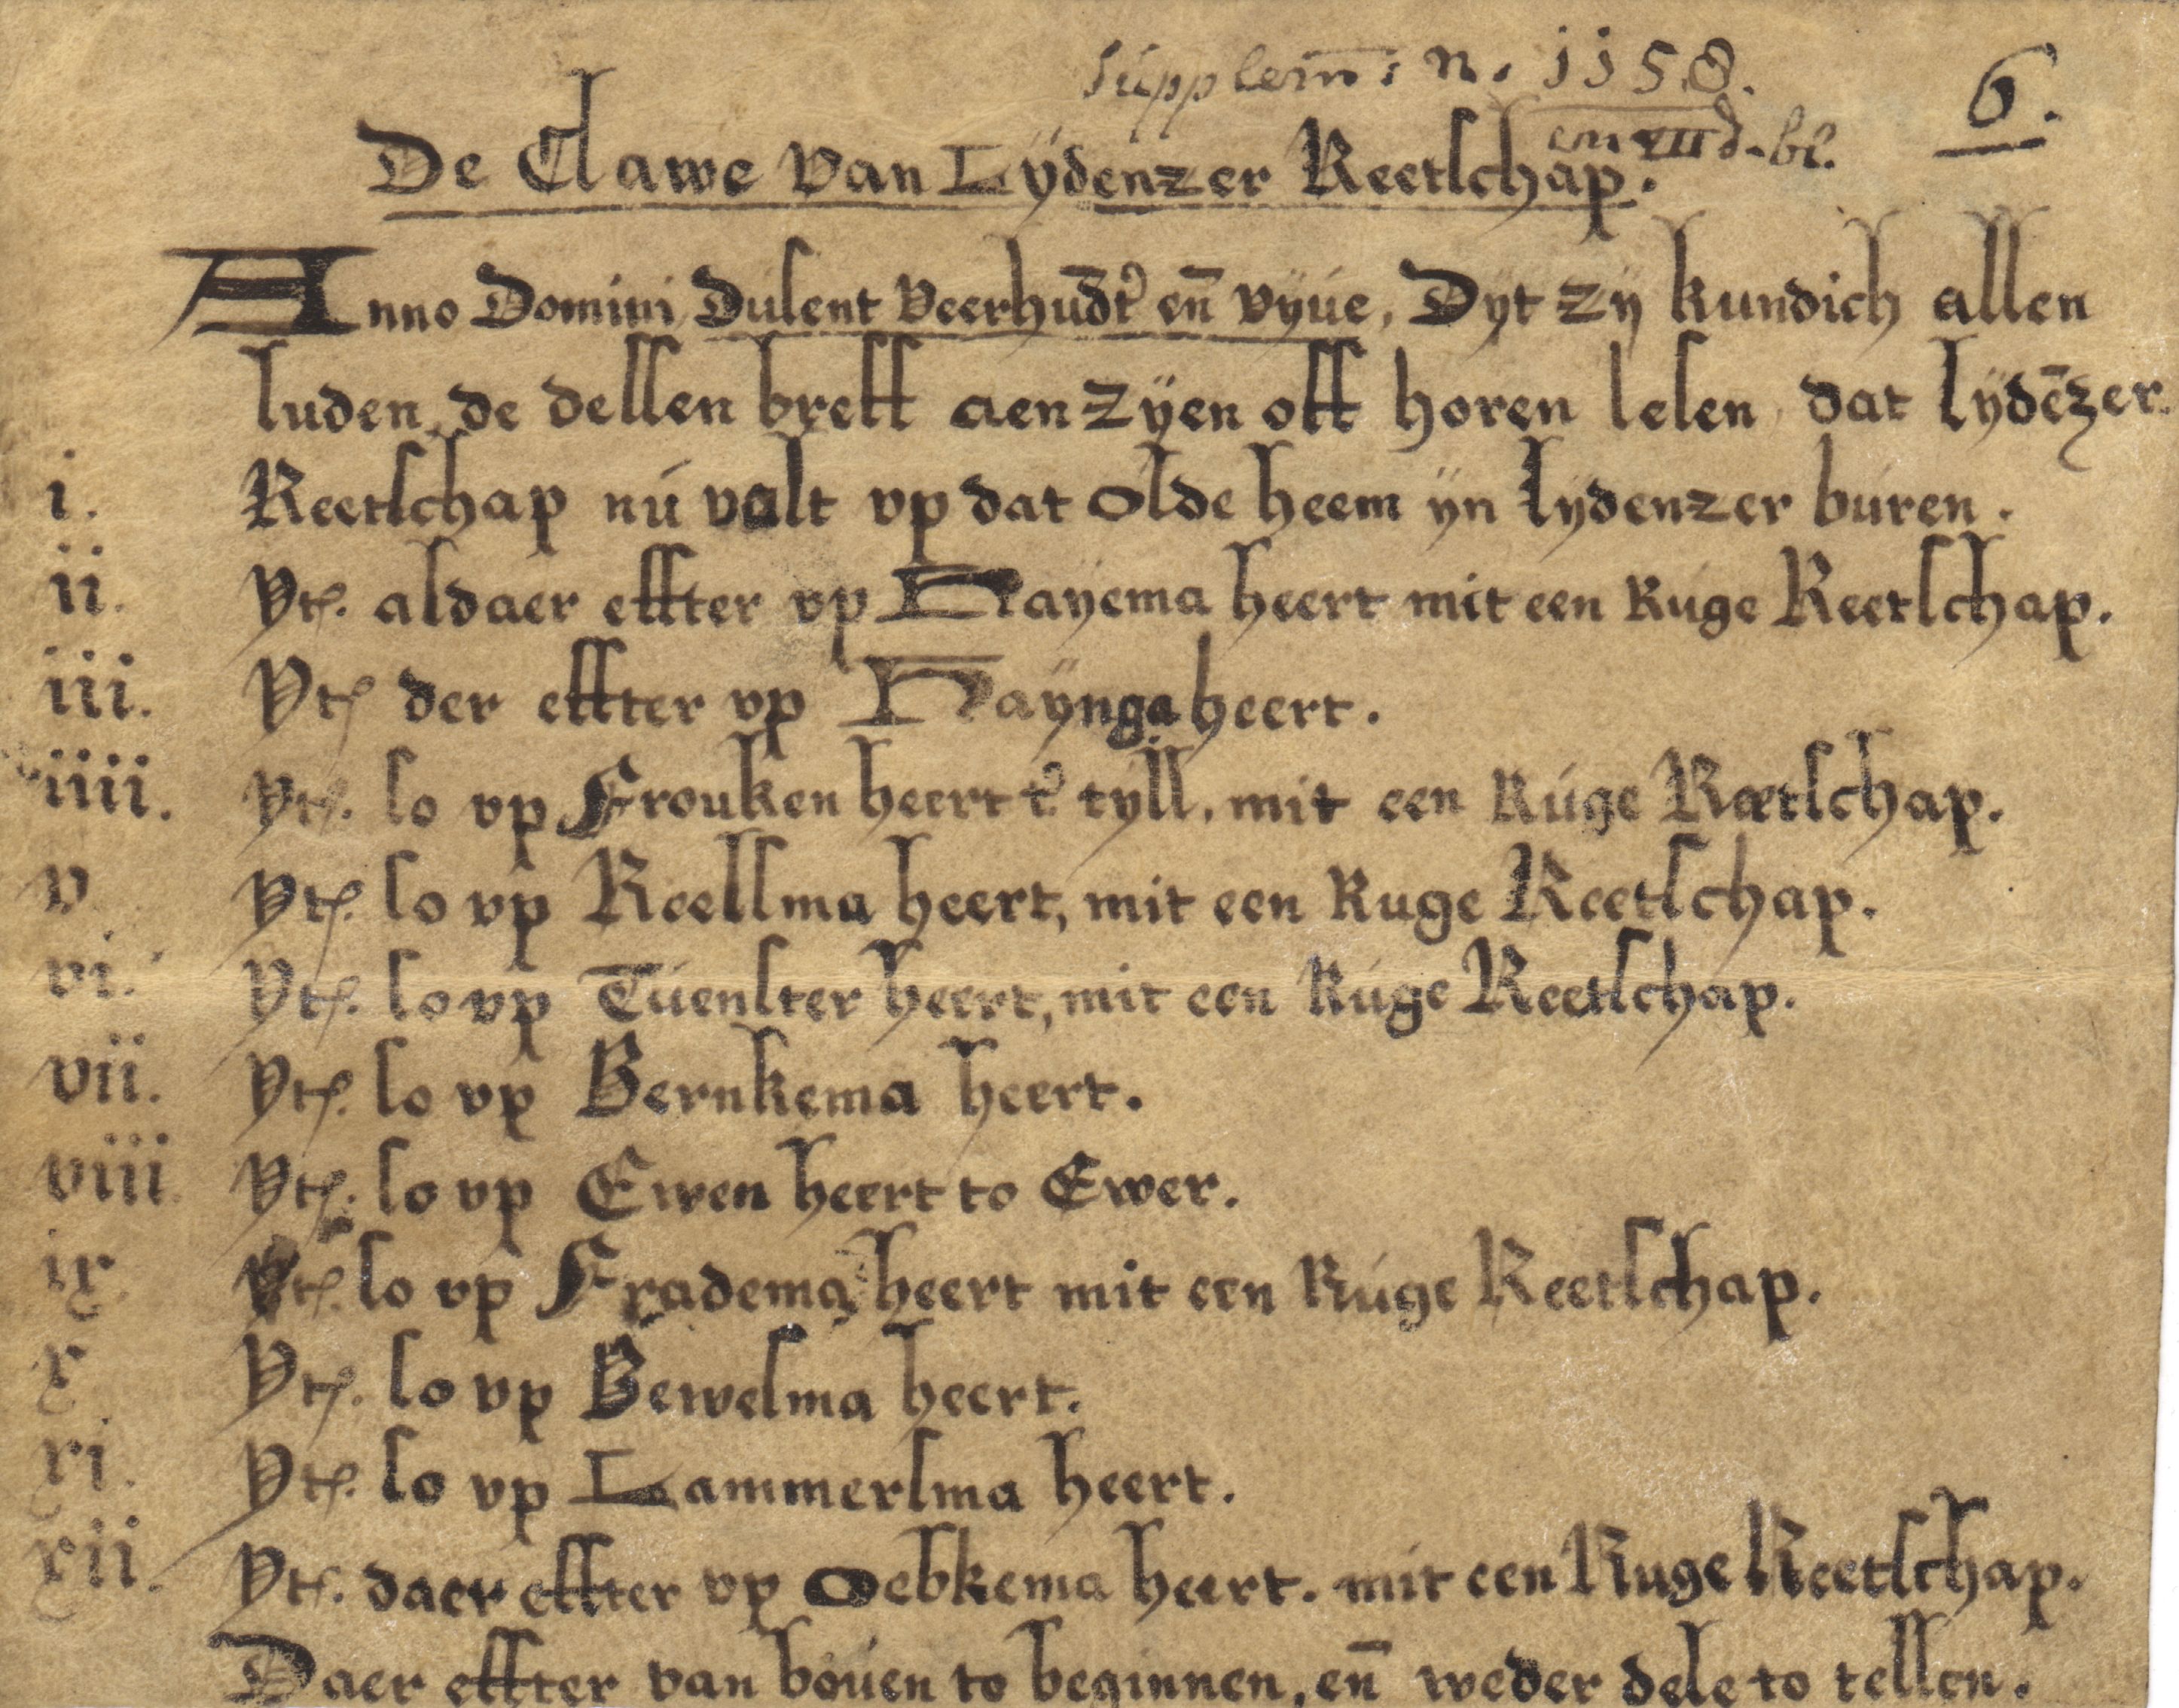 Supplem̄: n. 1158.
en VIII d. bl.
6.
De Clawe van Lÿdenzer Reetschap.
Anno Domini Dusent veerhud̄t en̄ vÿue, Dyt zij kundich allen
luden de dessen breff aenzÿen off horen lesen dat lÿdēzer
i. Reetschap nú valt vp dat olde heem ÿn lÿdenzer buren.
ii. Yt. aldaer effter vp Hayema heert mit een Ruge Reetschap.
iii. Yt der effter vp Haÿnga heert.
iiii. Yt. so vp Frouken heert t' tÿll, mit een Rúge Reetschap.
v Yt. so vp Reessma heert, mit een Ruge Reetschap.
vi. Yt. so vp Túenster heert, mit een Rúge Reetschap.
vii. Yt. so vp Bernkema heert.
viii Yt. so vp Ewen heert to Ewer.
ix Yt. so vp Fradema heert mit een Rúge Reetschap.
x Yt. so vp Bewesma heert.
xi. Yt. so vp Lammersma heert.
xii. Yt. daer effter vp Oebkema heert. mit een Ruge Reetschap.
Daer effter van bouen to beginnen, en̄ weder dele to tellen.